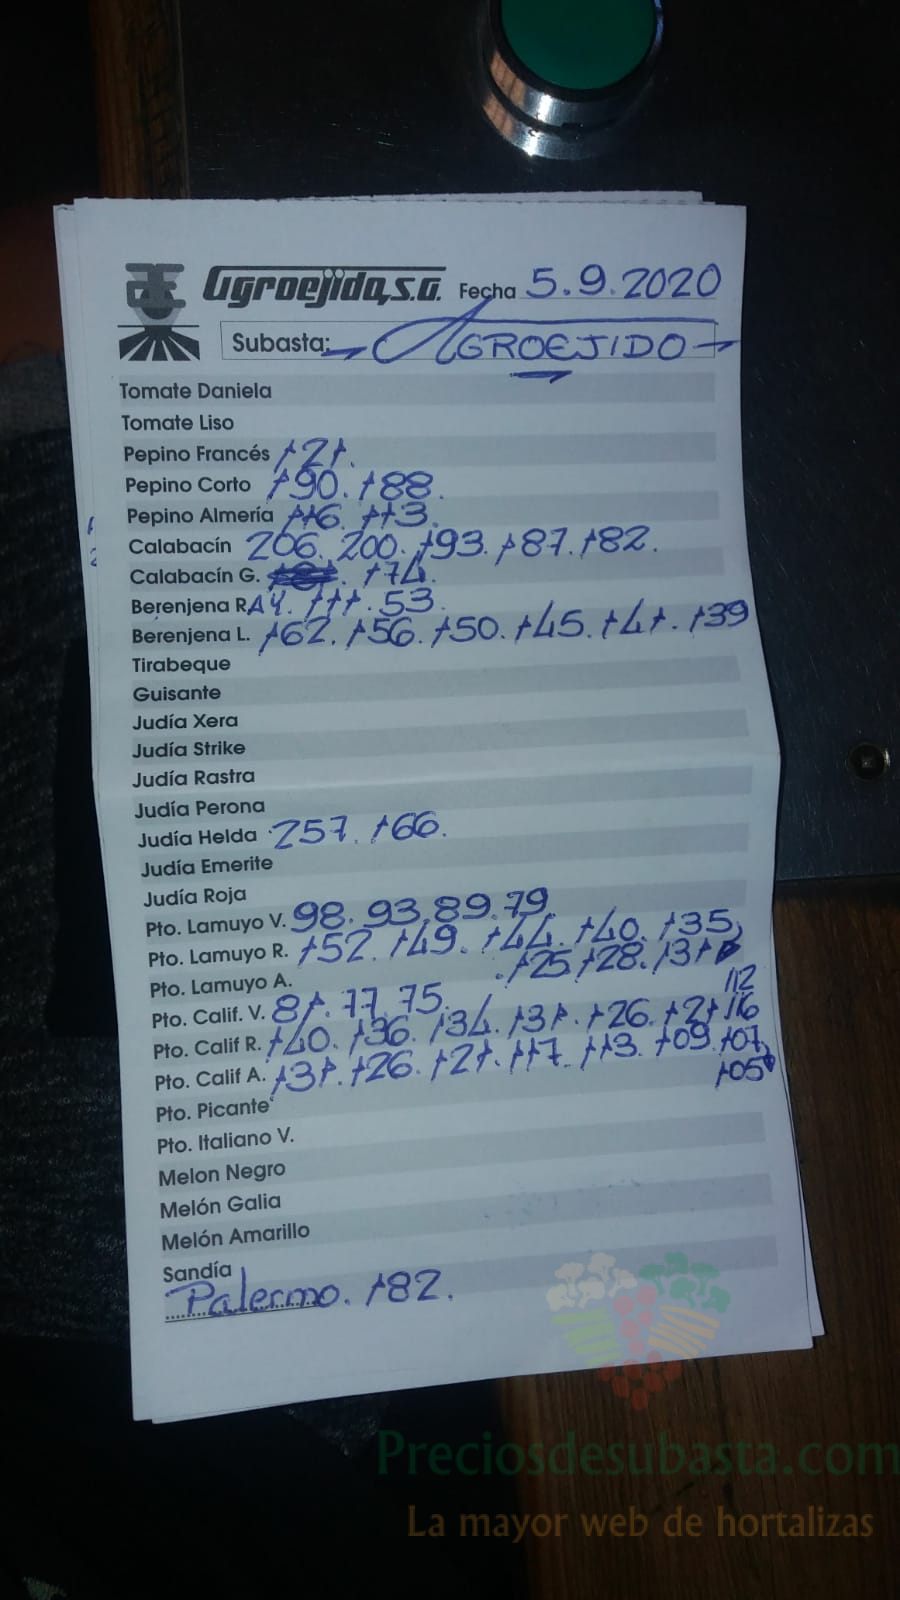 Agroejido, S.A. Fecha 5.9.2020
Subasta: AGROEJIDO
Tomate Daniela
Tomate Liso
Pepino Francés 121.
Pepino Corto 190. 188.
Pepino Almería 116. 113.
Calabacín 206. 200. 193. 187. 182.
Calabacín G. 174.
Berenjena R. 111. 53.
Berenjena L. 162. 156. 150. 145. 141. 139
Tirabeque
Guisante
Judía Xera
Judía Strike
Judía Rastra
Judía Perona
Judía Helda 257. 166.
Judía Emerite
Judía Roja
Pto. Lamuyo V. 98. 93. 89. 79
Pto. Lamuyo R. 152. 149. 144. 140. 135
Pto. Lamuyo A. 125. 128. 131
112
Pto. Calif. V. 81. 77. 75.
Pto. Calif R. 140. 136. 134. 131. 126. 121 116
Pto. Calif A. 131. 126. 121. 117. 113. 109. 107
105
Pto. Picante
Pto. Italiano V.
Melon Negro
Melón Galia
Melón Amarillo
Sandía
Palermo. 182.
Preciosdesubasta.com
La mayor web de hortalizas